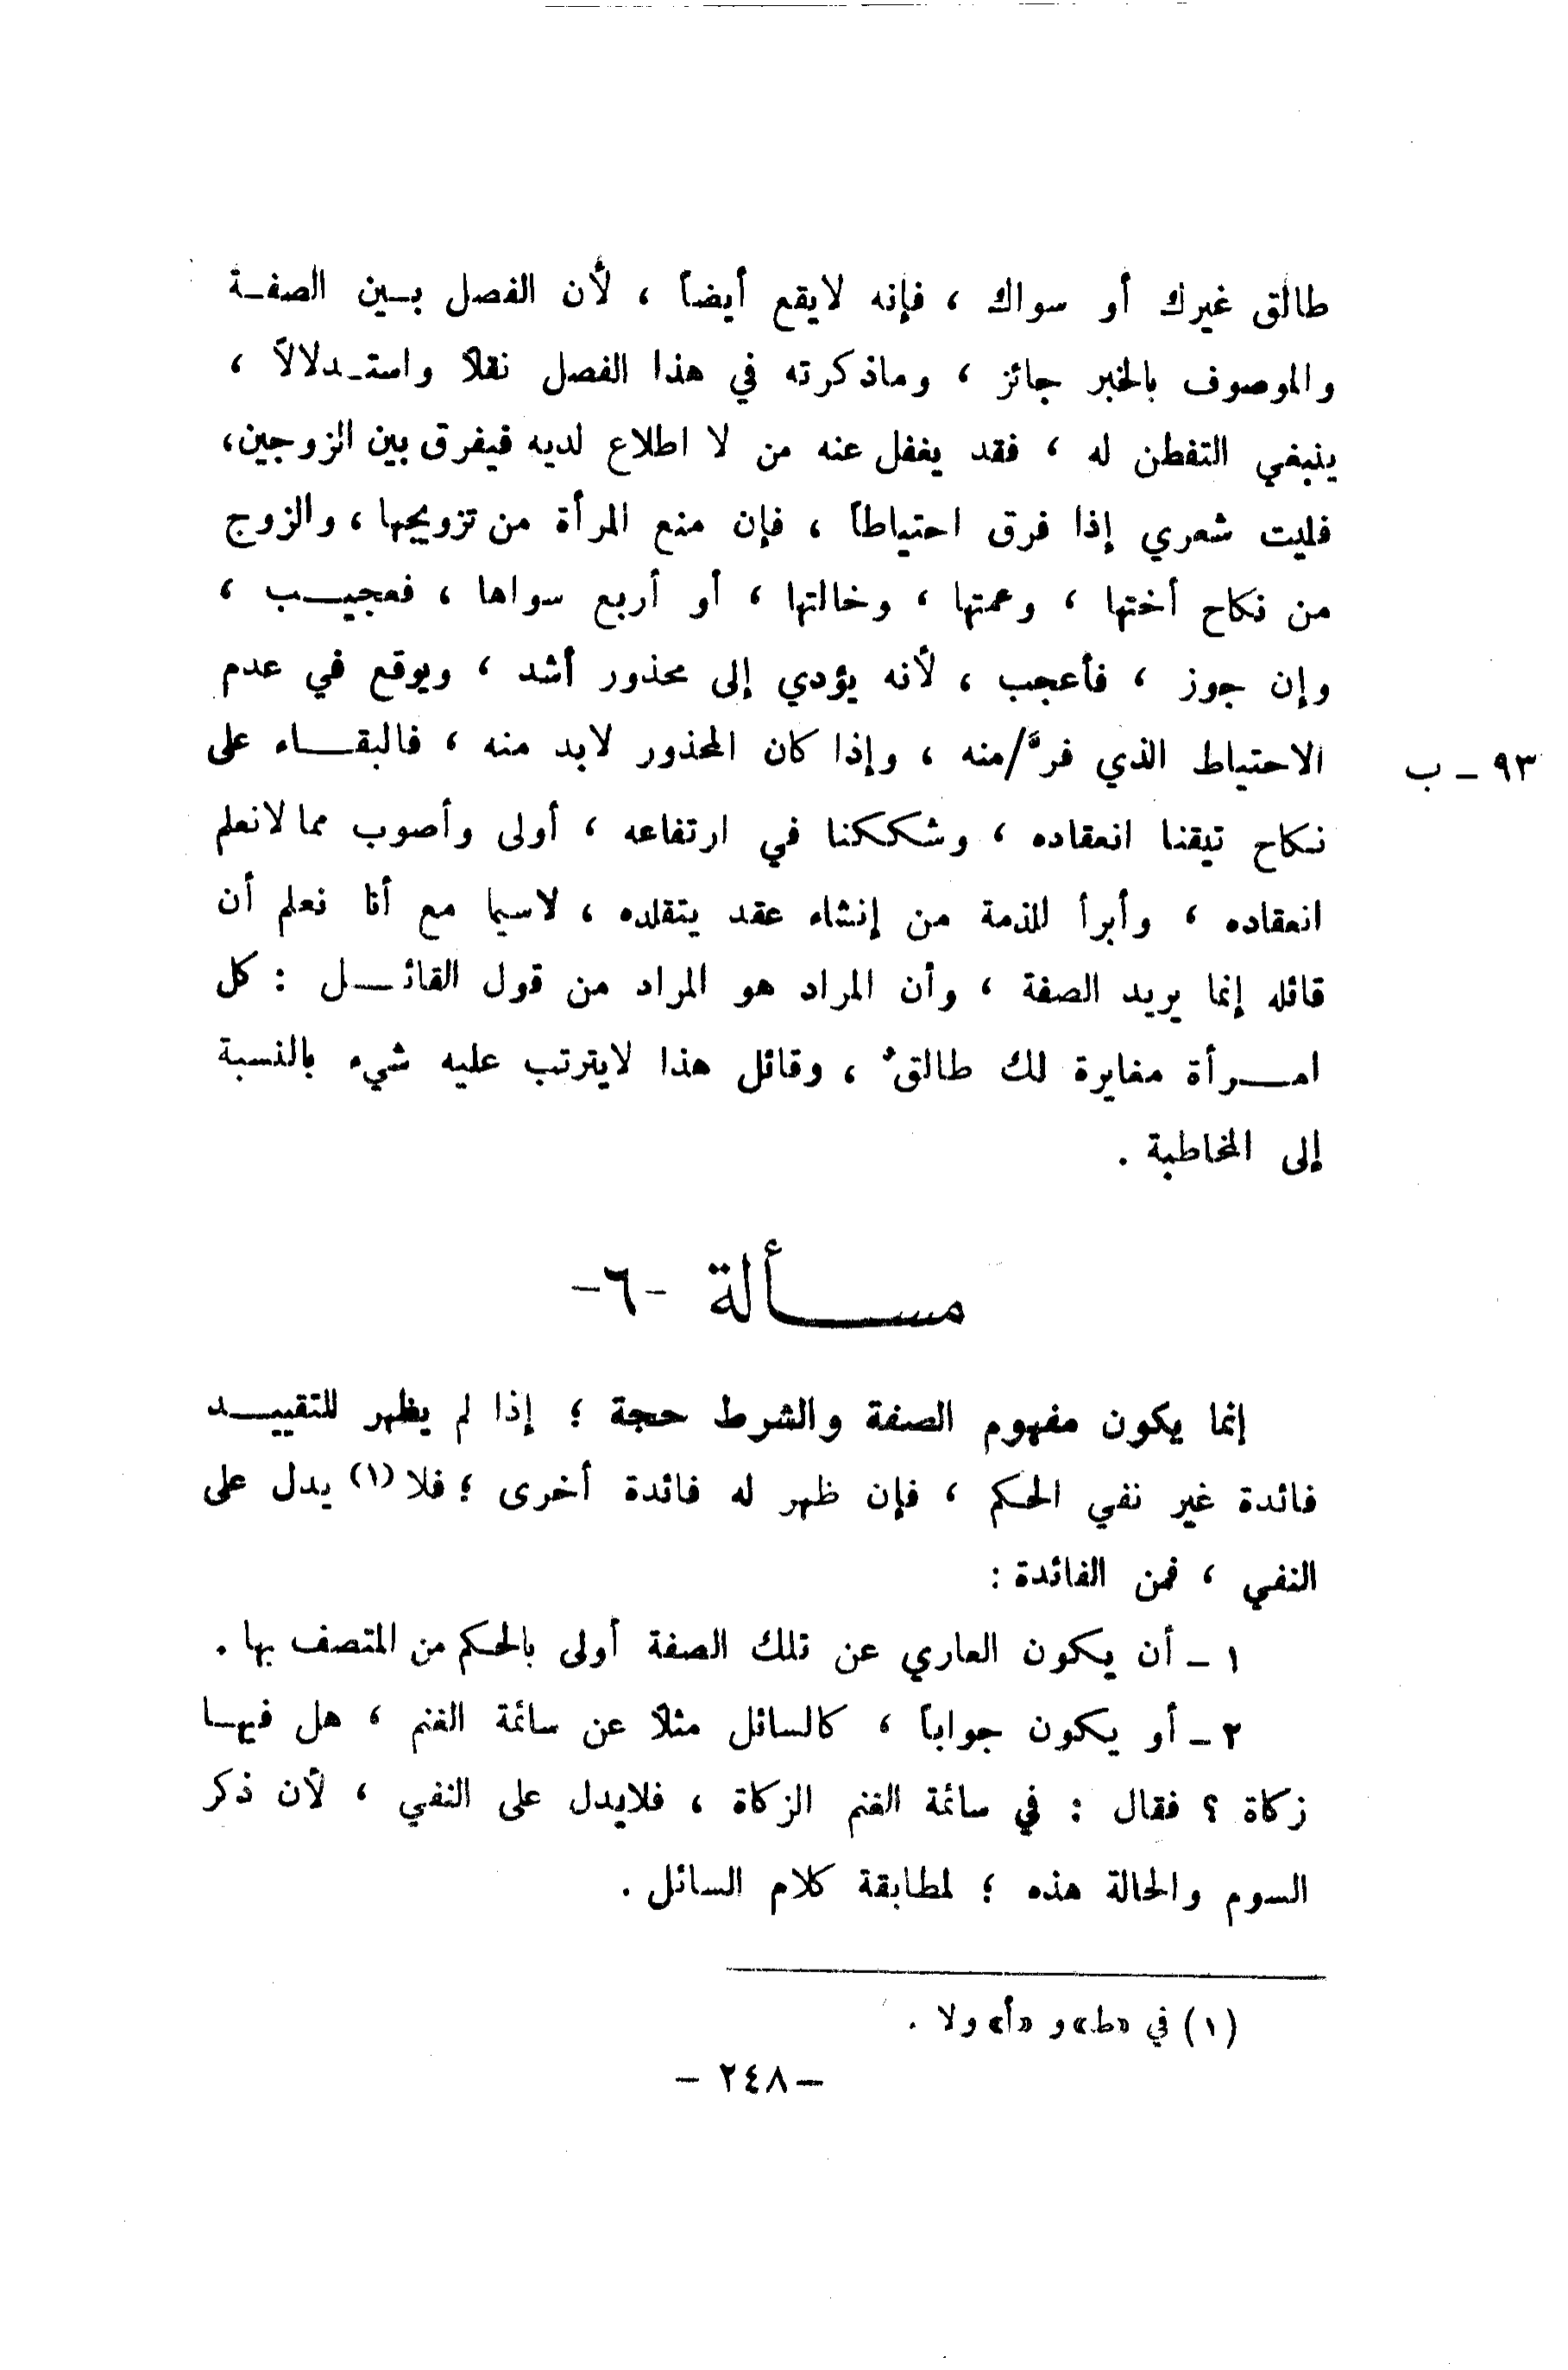 طالق غيرك أو سواك ، فإنه لايقع أيضاً ، لأن الفصل بـين الصفـة
والموصوف بالخبر جائز ، وماذكرته في هذا الفصل نقلاً واستـدلالاً ،
ينبغي التفطن له ، فقد يغفل عنه من لا اطلاع لديه فيفرق بين الزوجين،
فليت شعري إذا فرق احتياطاً ، فإن منع المرأة من تزويجها ، والزوج
من نكاح أختها ، وعمتها ، وخالتها ، أو أربع سواها ، فعجيـــب ،
وإن جوز ، فأعجب ، لأنه يؤدي إلى محذور أشد ، ويوقع في عدم
الاحتياط الذي فرَّ/منه ، وإذا كان المحذور لابد منه ، فالبقـــاء على
٩٣ - ب
نكاح تيقنا انعقاده ، وشككنا في ارتفاعه ، أولى وأصوب مما لانعلم
انعقاده ، وأبرأ للذمة من إنشاء عقد يتقلده ، لاسيما مع أنا نعلم أن
قائله إنما يريد الصفة ، وأن المراد هو المراد من قول القائـــل : كل
امـــرأة مغايرة لك طالقٌ ، وقائل هذا لايترتب عليه شيء بالنسبة
إلى المخاطبة .
مســـألة -٦-
إنما يكون مفهوم الصفة والشرط حجة ؛ إذا لم يظهر للتقييـــد
فائدة غير نفي الحكم ، فإن ظهر له فائدة أخرى ؛ فلا (١) يدل على
النفي ، فمن الفائدة :
١ - أن يكون العاري عن تلك الصفة أولى بالحكم من المتصف بها .
٢ - أو يكون جواباً ، كالسائل مثلاً عن سائمة الغنم ، هل فيهـا
زكاة ؟ فقال : في سائمة الغنم الزكاة ، فلايدل على النفي ، لأن ذكر
السوم والحالة هذه ؛ لمطابقة كلام السائل .
(١) في «ط» و «أ» ولا .
- ٢٤٨ -